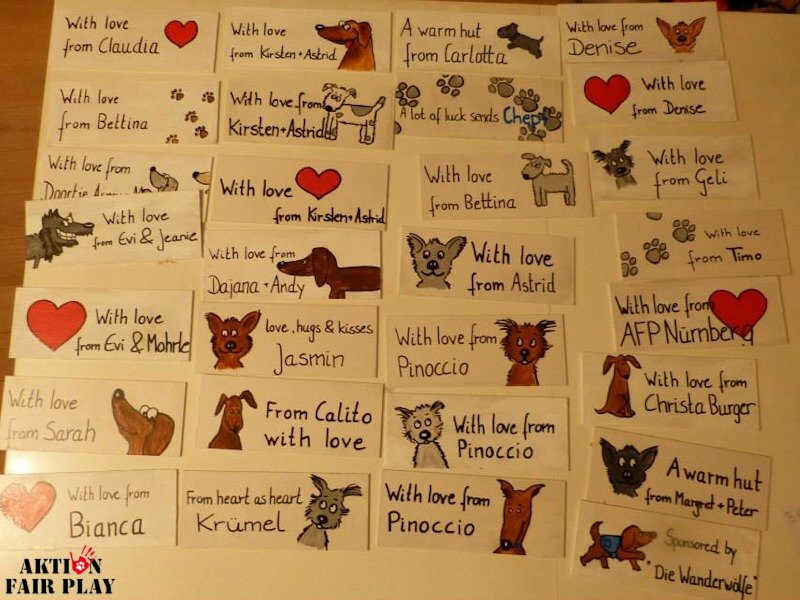 With love
from Claudia
With love
from Kirsten + Astrid
A warm hut
from Carlotta
With love from
Denise
With love
from Bettina
With love from
Kirsten + Astrid
A lot of luck sends
With love
from Denise
With love from
Doortje
With love
from Kirsten + Astrid
With love
from Bettina
With love
from Geli
With love
from Evi & Jeanie
With love from
Dajana + Andy
With love
from Astrid
With love
from Timo
With love
from Evi & Mohrle
love, hugs & kisses
Jasmin
With love from
Pinoccio
With love from
AFP Nürnberg
With love
from Sarah
From Calito
with love
With love from
Pinoccio
With love from
Christa Burger
With love from
Bianca
From heart as heart
Krümel
With love from
Pinoccio
A warm hut
from Margret + Peter
Sponsored by
"Die Wanderwölfe"
AKTION
FAIR PLAY